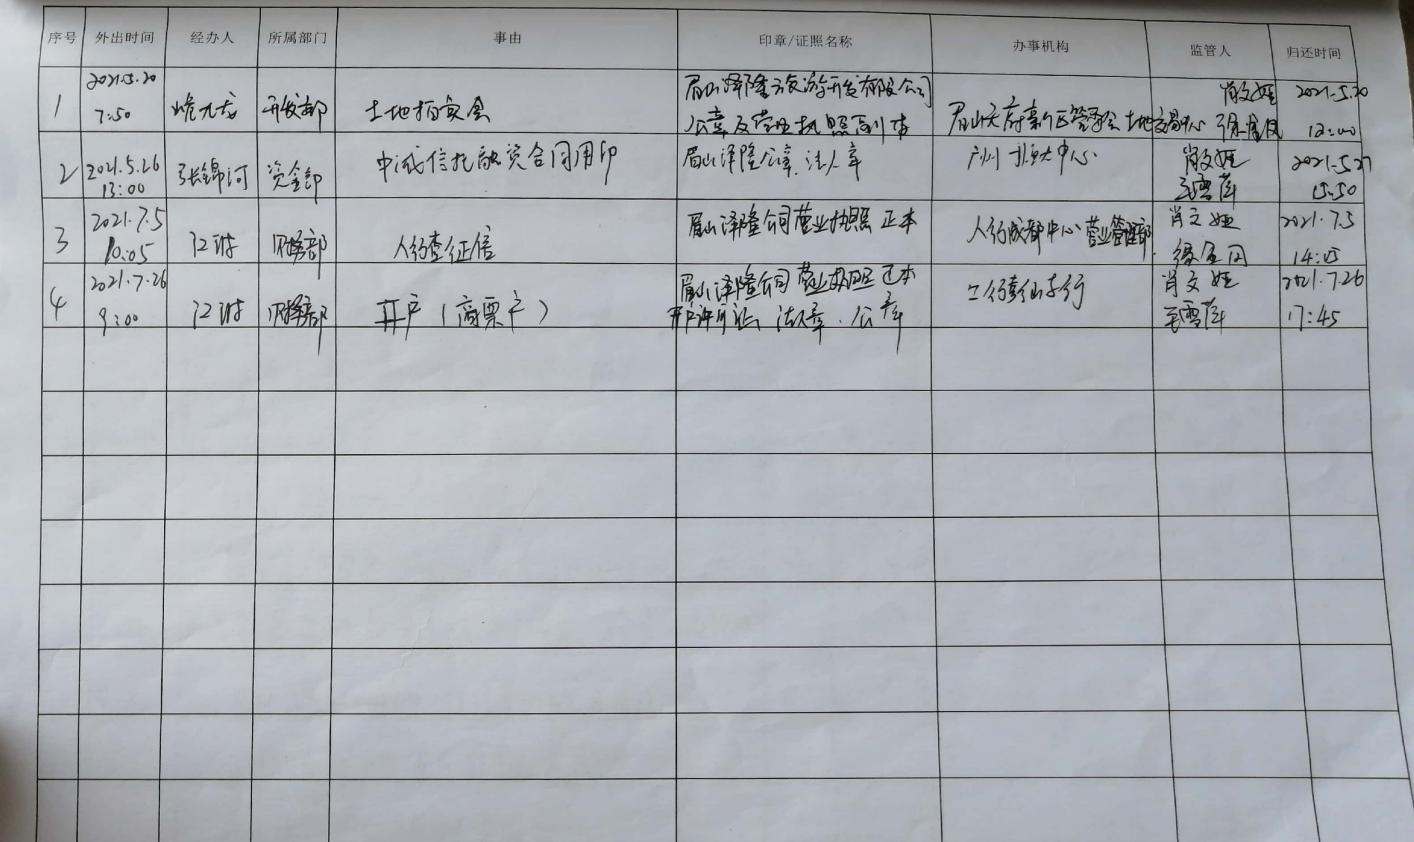 序号 外出时间 经办人 所属部门 事由 印章/证照名称 办事机构 监管人 归还时间
1 2021.5.20 7:50 九龙 开发部 土地拍卖会 眉山泽隆旅游开发有限公司 公章及营业执照副本 眉山天府新区管委会土地交易中心 肖文娅 2021.5.20 12:00
2 2021.5.26 13:00 张锦河 资金部 中诚信托融资合同用印 眉山泽隆公章、法人章 广州 中心 肖文娅 2021.5.27 15:50
3 2021.7.5 10:05 江 财务部 人行查征信 眉山泽隆公司营业执照 正本 人行成都中心营业管理部 肖文娅 2021.7.5 14:05
4 2021.7.26 9:00 江 财务部 开户(商票户) 眉山泽隆公司营业执照正本 开户许可证、法人章、公章 工行彭山支行 肖文娅 2021.7.26 17:45